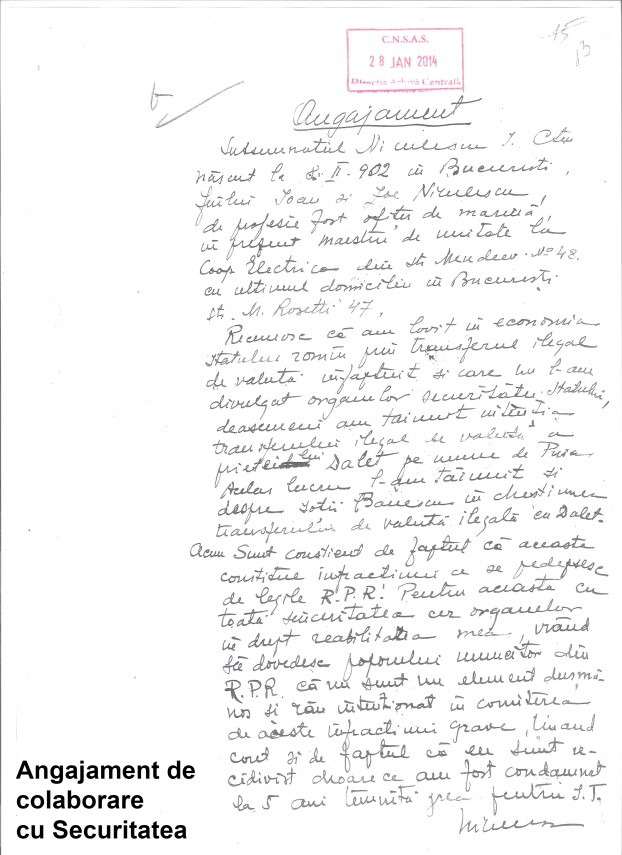 C.N.S.A.S.
28 JAN 2014
Direcția Arhivă Centrală
15
13
Angajament
Subsemnatul Niculescu I. Ctin
născut la 8.II.902 în București,
fiului Ioan și Zoe Niculescu,
de profesie fost ofițer de marină,
în prezent maestru de unitate la
Coop Electrica din str Mendeev No 48.
cu ultimul domiciliu în București
str. M. Rosetti 47,
Recunosc că am lovit în economia
statului român prin transferul ilegal
de valută înfăptuit și care nu l-am
divulgat organelor securității Statului,
deasemeni am tăinuit intenția
transferului ilegal de valută a
prietenului Dalet pe nume de
Acelaș lucru l-am tăinuit și
despre soții Bănescu în chestiunea
transferului de valută ilegală cu Dalet.
Acum sunt conștient de faptul că aceasta
constitue infracțiuni ce se pedepsesc
de legile R.P.R. Pentru aceasta cu
toată sinceritatea cer organelor
în drept reabilitatea mea, vrând
să dovedesc poporului muncitor din
R.P.R. că nu sunt un element dușmă-
nos și rău intenționat în comiterea
de aceste infracțiuni grave, ținând
cont și de faptul că eu sunt re-
cidivist deoarece am fost condamnat
la 5 ani temniță grea pentru I.T.
Angajament de
colaborare
cu Securitatea